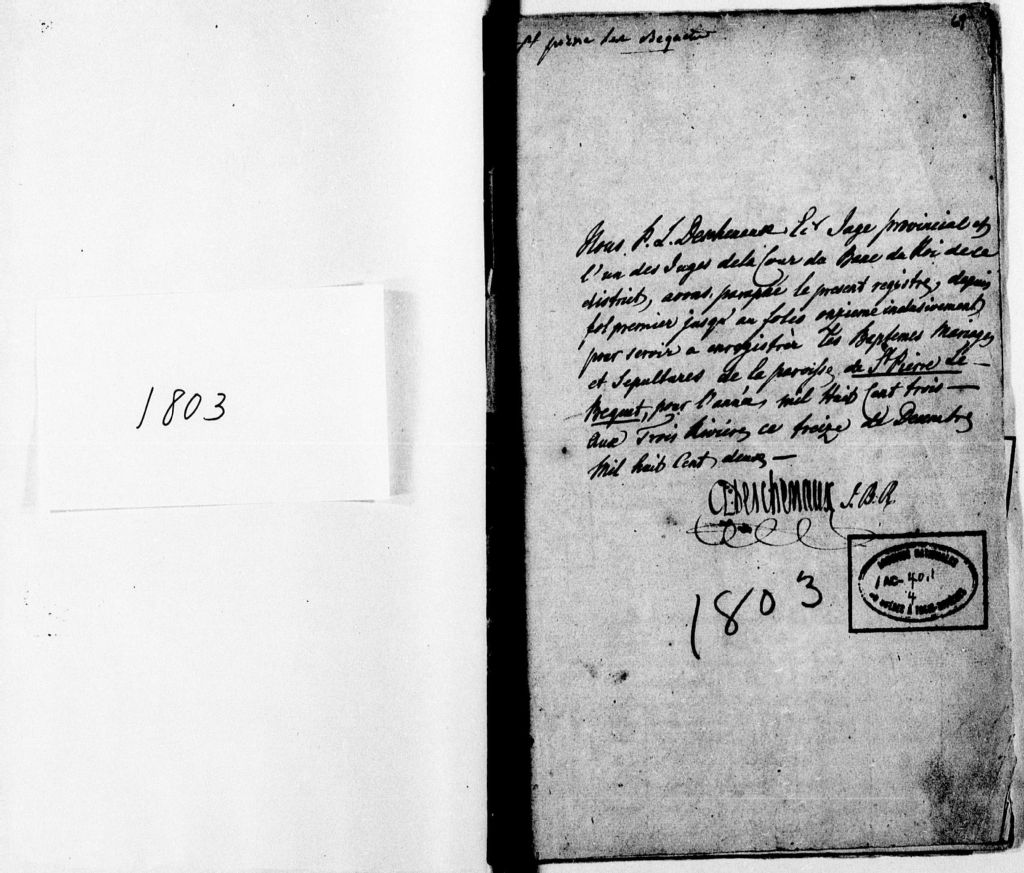 1803
68
St pierre les Bequets
Nous P. L. Deschenaux Ecr Juge provincial et
l'un des Juges de la Cour du Banc du Roi de ce
district, avons paraphé le present registre, depuis
fol premier jusqu'au folio onzieme inclusivement,
pour servir a enregistrer les Baptemes Mariages
et Sepultures de la paroisse de St Pierre Le
Bequet, pour l'année, mil Huit Cent trois —
Aux Trois Rivieres ce treize de Decembre
mil huit Cent deux —
Deschenaux J. B. R.
1803
ARCHIVES NATIONALES
AC-401
4
DU QUÉBEC À TROIS-RIVIÈRES